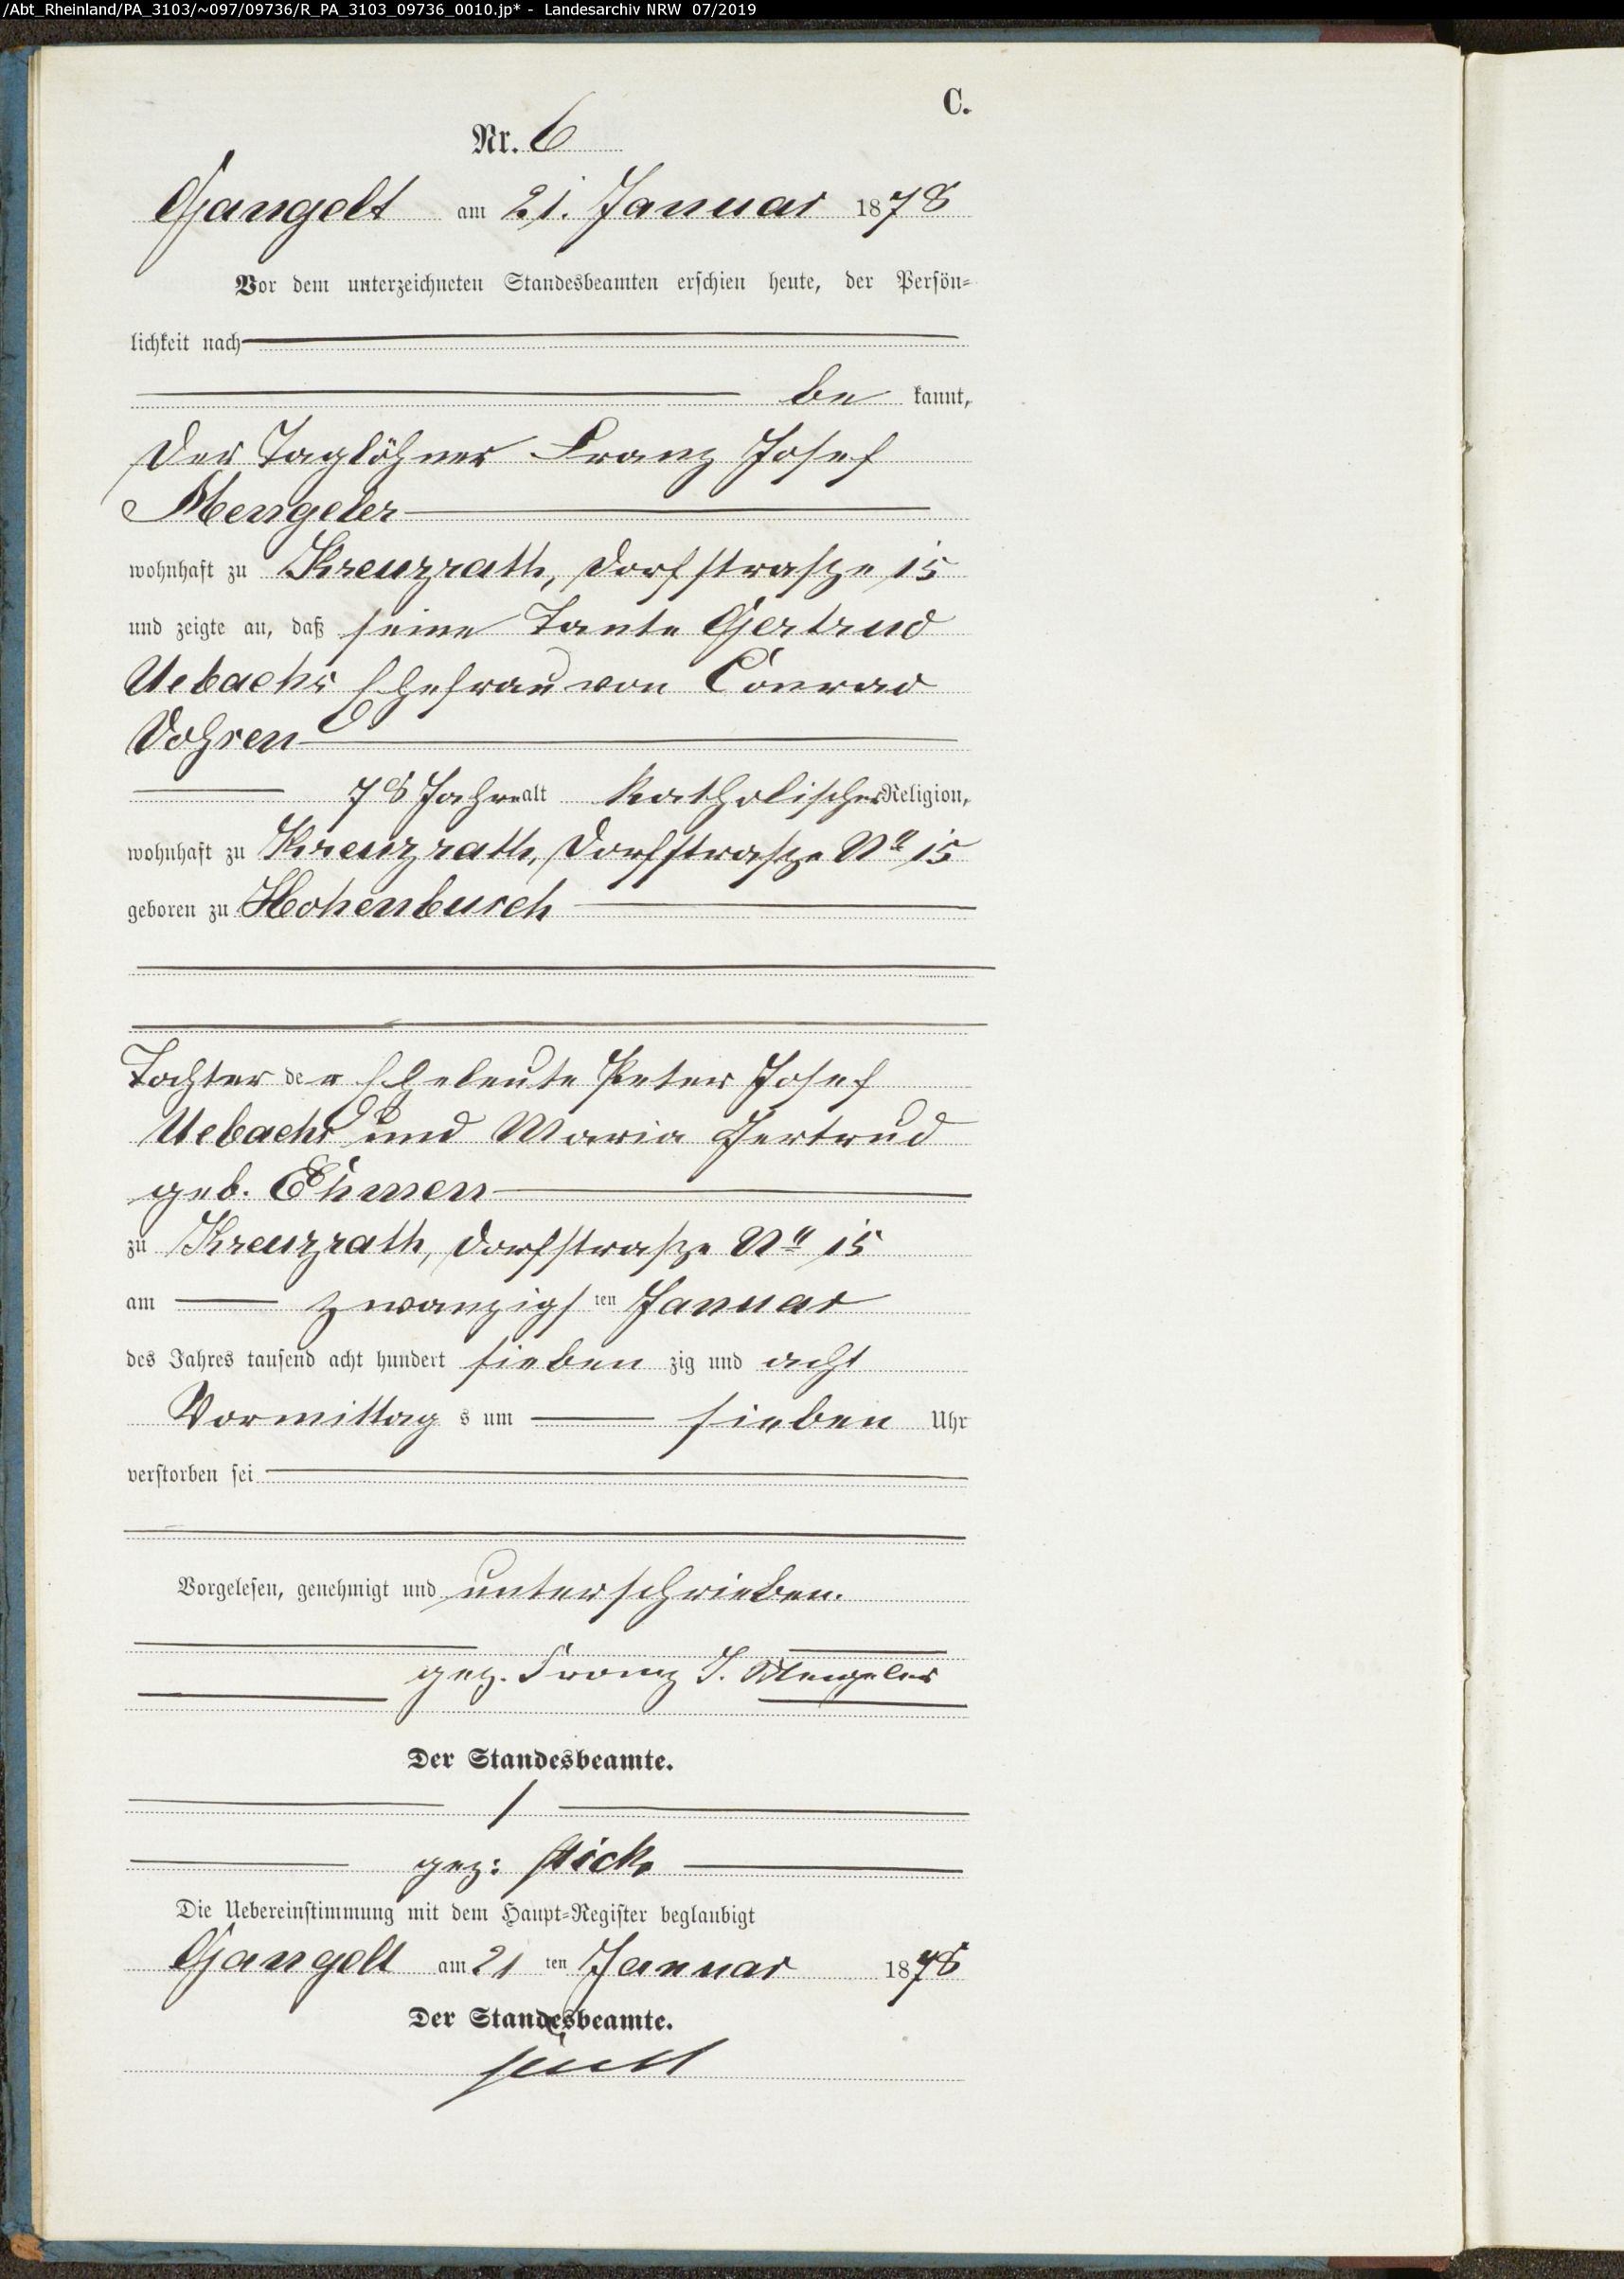 /Abt_Rheinland/PA_3103/~097/09736/R_PA_3103_09736_0010.jp* - Landesarchiv NRW 07/2019
C.
Nr. 6
Gangelt am 21. Januar 1878
Vor dem unterzeichneten Standesbeamten erschien heute, der Persön-
lichkeit nach
be kannt,
der Taglöhner Franz Josef
Mengeler
wohnhaft zu Kreuzrath, Dorfstrasze 15
und zeigte an, daß seine Tante Gertrud
Uebachs Ehefrau von Conrad
Dohren
78 Jahre alt katholischer Religion,
wohnhaft zu Kreuzrath, Dorfstrasze No 15
geboren zu Hohenbusch
Tochter der Eheleute Peter Josef
Uebachs und Maria Gertrud
geb. Ehmen
zu Kreuzrath, Dorfstrasze No 15
am zwanzigs ten Januar
des Jahres tausend acht hundert sieben zig und acht
Vormittag s um sieben Uhr
verstorben sei
Vorgelesen, genehmigt und unterschrieben.
gez. Franz J. Mengeler
Der Standesbeamte.
gez:
Die Uebereinstimmung mit dem Haupt-Register beglaubigt
Gangelt am 21 ten Januar 1878
Der Standesbeamte.